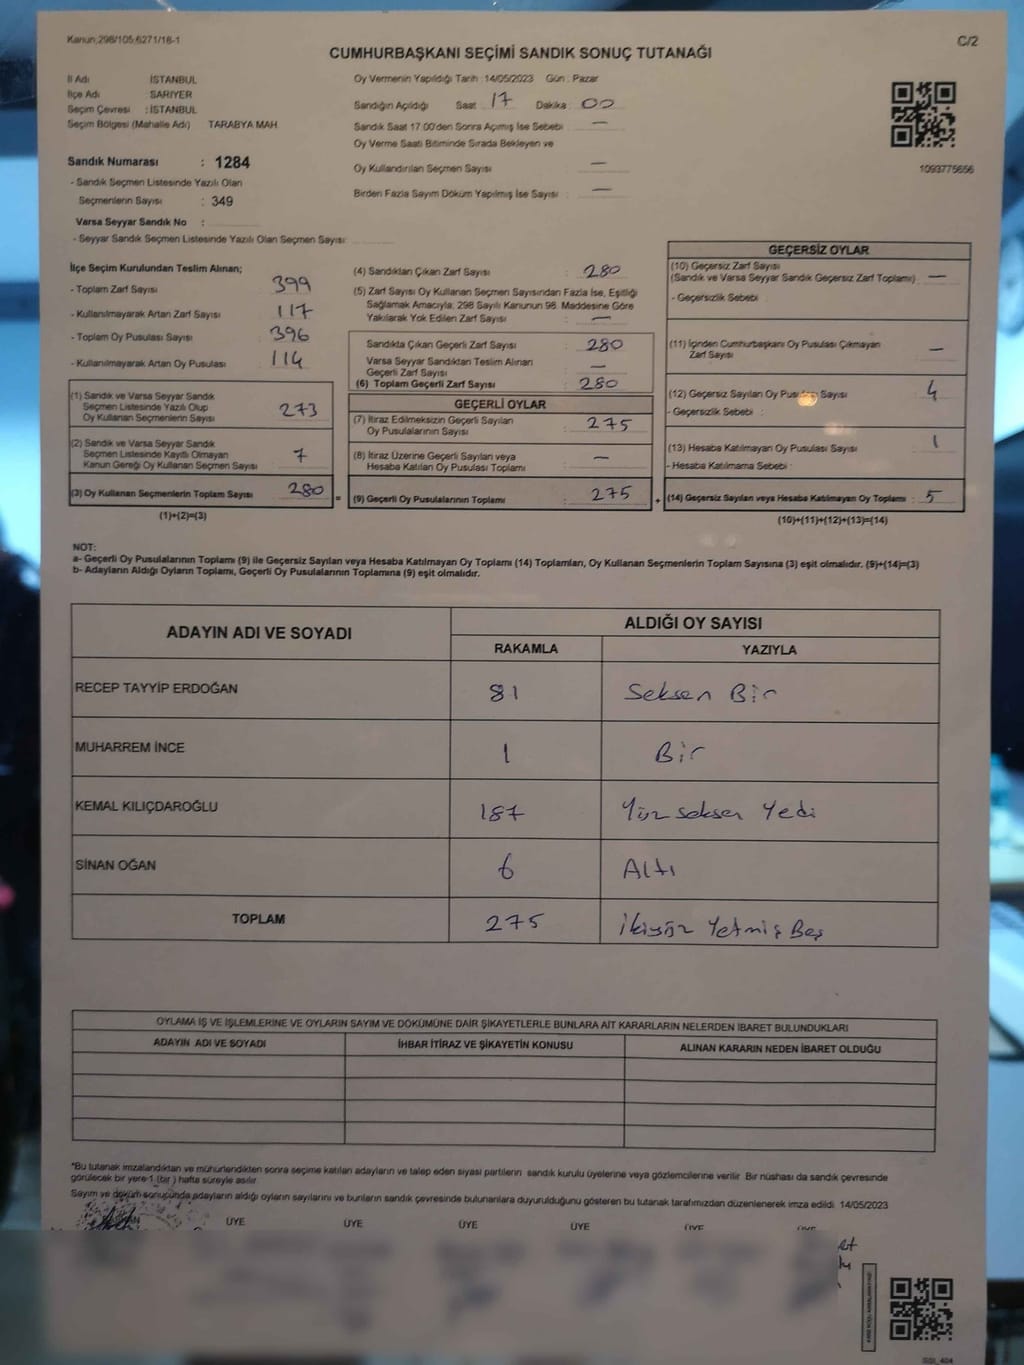 Kanun;298/105;6271/18-1
C/2
CUMHURBAŞKANI SEÇİMİ SANDIK SONUÇ TUTANAĞI
İl Adı İSTANBUL
İlçe Adı SARIYER
Seçim Çevresi : İSTANBUL
Seçim Bölgesi (Mahalle Adı) TARABYA MAH.
Sandık Numarası : 1284
- Sandık Seçmen Listesinde Yazılı Olan
Seçmenlerin Sayısı : 349
Varsa Seyyar Sandık No :
- Seyyar Sandık Seçmen Listesinde Yazılı Olan Seçmen Sayısı:
Oy Vermenin Yapıldığı Tarih :14/05/2023 Gün : Pazar
Sandığın Açıldığı Saat 17 Dakika : 00
Sandık Saat 17.00'den Sonra Açımış İse Sebebi : —
Oy Verme Saati Bitiminde Sırada Bekleyen ve
Oy Kullandırılan Seçmen Sayısı : —
Birden Fazla Sayım Döküm Yapılmış İse Sayısı : —
1093775656
İlçe Seçim Kurulundan Teslim Alınan;
- Toplam Zarf Sayısı 399
- Kullanılmayarak Artan Zarf Sayısı 117
- Toplam Oy Pusulası Sayısı 396
- Kullanılmayarak Artan Oy Pusulası 114
(1) Sandık ve Varsa Seyyar Sandık
Seçmen Listesinde Yazılı Olup
Oy Kullanan Seçmenlerin Sayısı 273
(2) Sandık ve Varsa Seyyar Sandık
Seçmen Listesinde Kayıtlı Olmayan
Kanun Gereği Oy Kullanan Seçmen Sayısı 7
(3) Oy Kullanan Seçmenlerin Toplam Sayısı 280 =
(1)+(2)=(3)
(4) Sandıktan Çıkan Zarf Sayısı : 280
(5) Zarf Sayısı Oy Kullanan Seçmen Sayısından Fazla İse, Eşitliği
Sağlamak Amacıyla, 298 Sayılı Kanunun 98. Maddesine Göre
Yakılarak Yok Edilen Zarf Sayısı : —
Sandıkta Çıkan Geçerli Zarf Sayısı : 280
Varsa Seyyar Sandıktan Teslim Alınan
Geçerli Zarf Sayısı : —
(6) Toplam Geçerli Zarf Sayısı : 280
GEÇERLİ OYLAR
(7) İtiraz Edilmeksizin Geçerli Sayılan
Oy Pusulalarının Sayısı : 275
(8) İtiraz Üzerine Geçerli Sayılan veya
Hesaba Katılan Oy Pusulası Toplamı : —
(9) Geçerli Oy Pusulalarının Toplamı : 275 +
GEÇERSİZ OYLAR
(10) Geçersiz Zarf Sayısı
(Sandık ve Varsa Seyyar Sandık Geçersiz Zarf Toplamı) : —
- Geçersizlik Sebebi :
(11) İçinden Cumhurbaşkanı Oy Pusulası Çıkmayan
Zarf Sayısı : —
(12) Geçersiz Sayılan Oy Pusulası Sayısı : 4
- Geçersizlik Sebebi :
(13) Hesaba Katılmayan Oy Pusulası Sayısı : 1
- Hesaba Katılmama Sebebi :
(14) Geçersiz Sayılan veya Hesaba Katılmayan Oy Toplamı : 5
(10)+(11)+(12)+(13)=(14)
NOT:
a- Geçerli Oy Pusulalarının Toplamı (9) ile Geçersiz Sayılan veya Hesaba Katılmayan Oy Toplamı (14) Toplamları, Oy Kullanan Seçmenlerin Toplam Sayısına (3) eşit olmalıdır. (9)+(14)=(3)
b- Adayların Aldığı Oyların Toplamı, Geçerli Oy Pusulalarının Toplamına (9) eşit olmalıdır.
ADAYIN ADI VE SOYADI ALDIĞI OY SAYISI
RAKAMLA YAZIYLA
RECEP TAYYİP ERDOĞAN 81 Seksen Bir
MUHARREM İNCE 1 Bir
KEMAL KILIÇDAROĞLU 187 Yüz seksen Yedi
SİNAN OĞAN 6 Altı
TOPLAM 275 İkiyüz Yetmiş Beş
OYLAMA İŞ VE İŞLEMLERİNE VE OYLARIN SAYIM VE DÖKÜMÜNE DAİR ŞİKAYETLERLE BUNLARA AİT KARARLARIN NELERDEN İBARET BULUNDUKLARI
ADAYIN ADI VE SOYADI İHBAR İTİRAZ VE ŞİKAYETİN KONUSU ALINAN KARARIN NEDEN İBARET OLDUĞU
*Bu tutanak imzalandıktan ve mühürlendikten sonra seçime katılan adayların ve talep eden siyasi partilerin sandık kurulu üyelerine veya gözlemcilerine verilir. Bir nüshası da sandık çevresinde
görülecek bir yere 1 (bir) hafta süreyle asılır.
Sayım ve döküm sonucunda adayların aldığı oyların sayılarını ve bunların sandık çevresinde bulunanlara duyurulduğunu gösteren bu tutanak tarafımızdan düzenlenerek imza edildi. 14/05/2023
ÜYE ÜYE ÜYE ÜYE ÜYE ÜYE